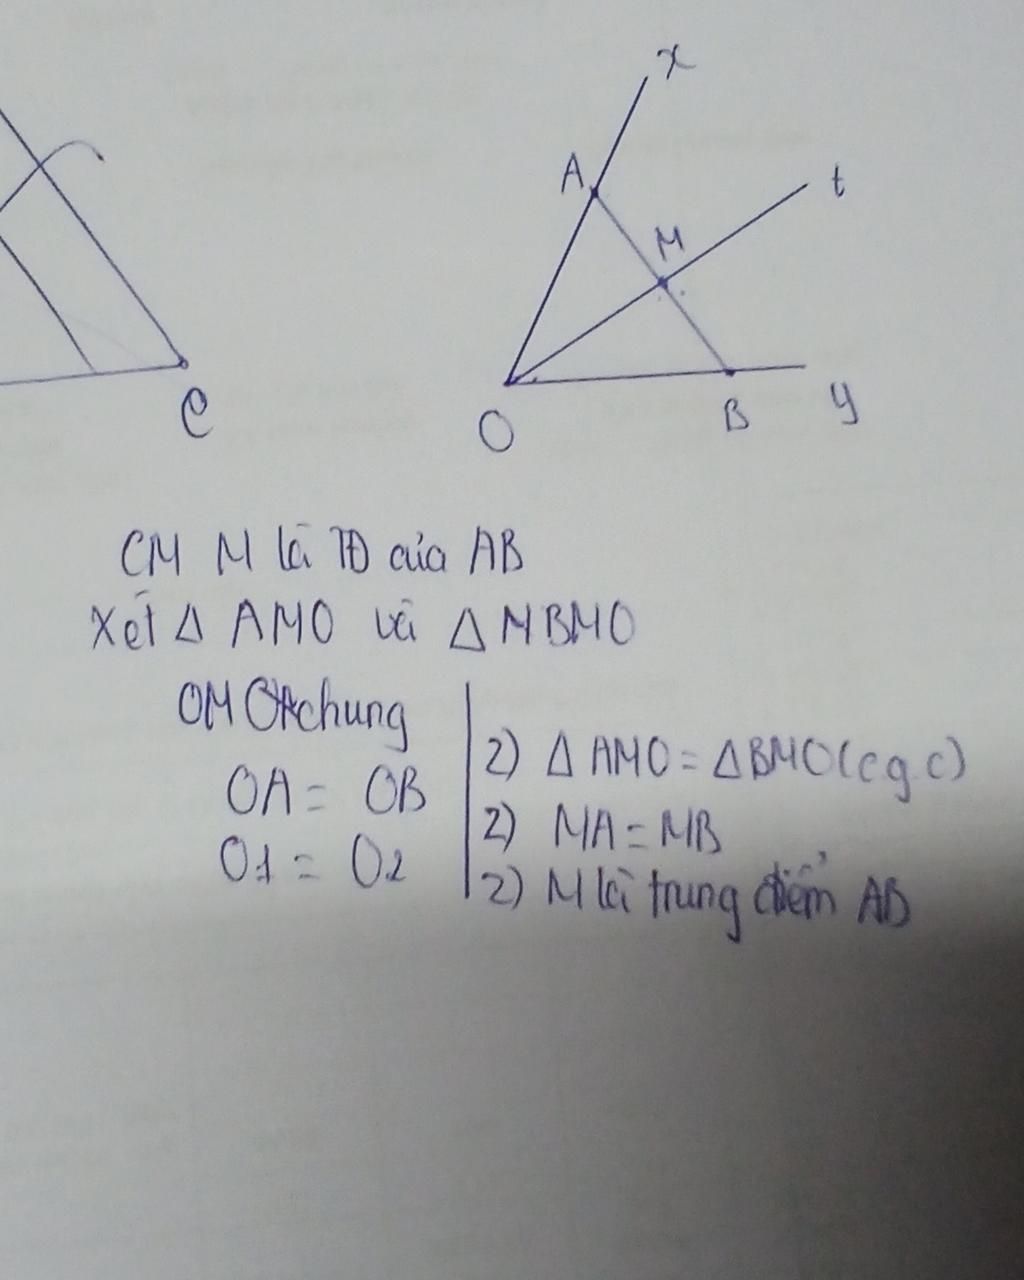 x
A
t
M
C
O
B
y
CM M là TĐ của AB
Xét Δ AMO và Δ MBMO
OM chung
OA = OB
O1 = O2
2) Δ AMO = Δ BMO (c g.c)
2) MA = MB
2) M là trung điểm AB